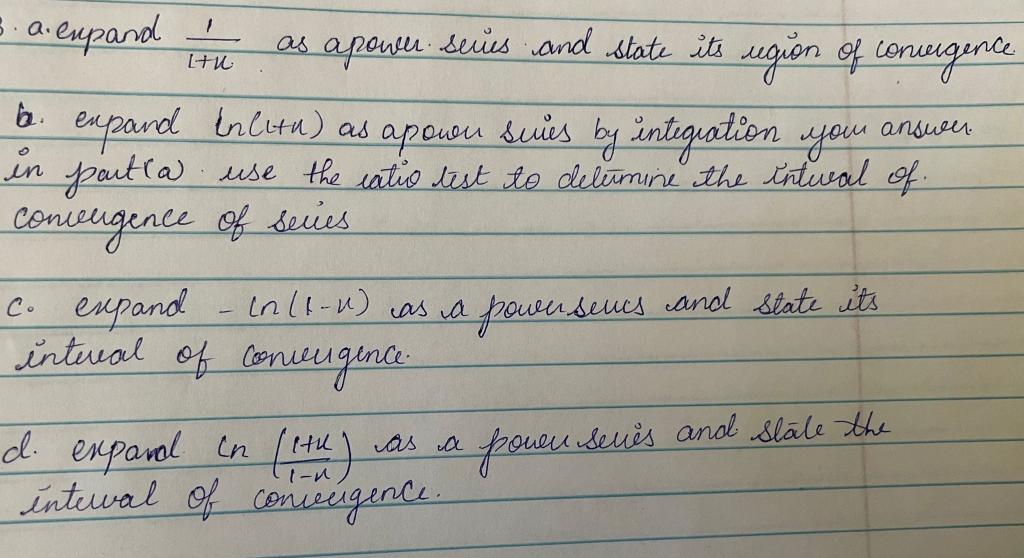 3. a. expand 1/1+x as a power series and state its region of convergence
b. expand ln(1+x) as a power series by integration your answer
in part(a). use the ratio test to determine the interval of.
convergence of series
c. expand - ln(1-x) as a power series and state its
interval of convergence.
d. expand ln (1+x/1-x) as a power series and state the
interval of convergence.